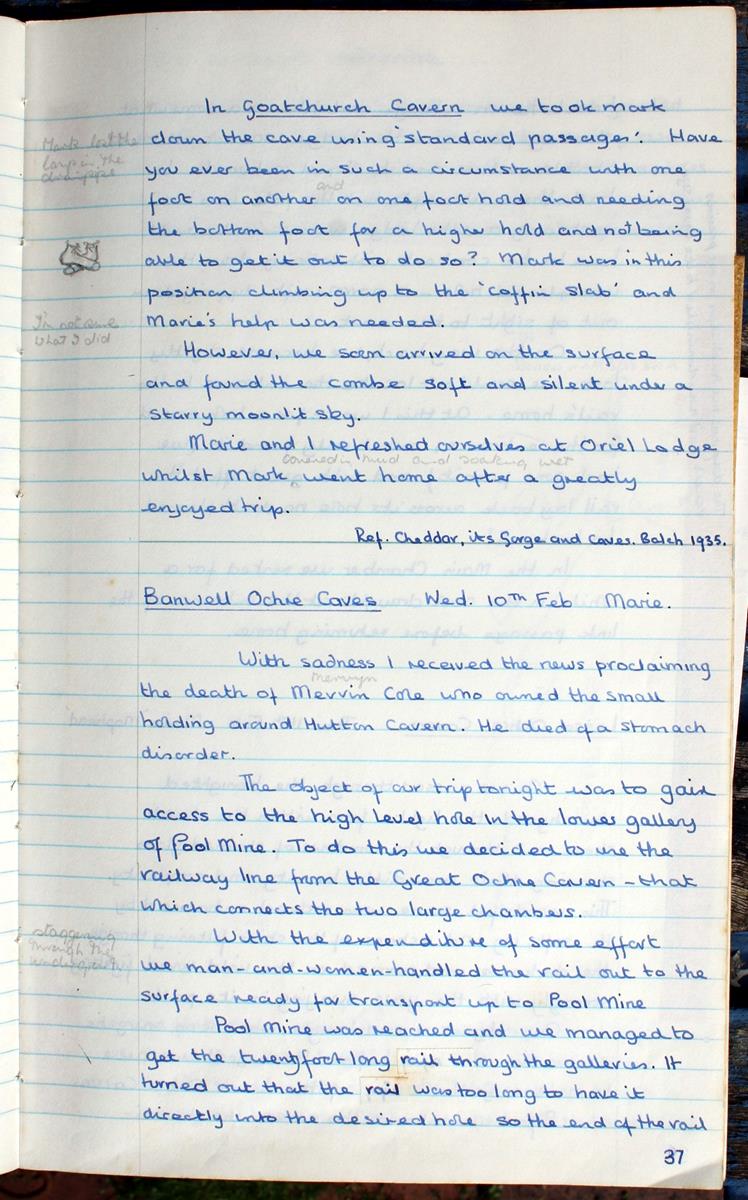 In Goatchurch Cavern we took mark
Mark lost the
lamp in the
drainpipe
down the cave using 'standard passages'. Have
you ever been in such a circumstance with one
and
foot on another on one foot hold and needing
the bottom foot for a higher hold and not being
able to get it out to do so? Mark was in this
position climbing up to the 'coffin slab' and
I'm not sure
what I did
Marie's help was needed.
However, we soon arrived on the surface
and found the combe soft and silent under a
starry moonlit sky.
Marie and I refreshed ourselves at Oriel Lodge
covered in mud and soaking wet
whilst Mark went home after a greatly
enjoyed trip.
Ref. Cheddar, its Gorge and Caves. Balch 1935.
Banwell Ochre Caves Wed. 10th Feb Marie.
With sadness I received the news proclaiming
Mervyn
the death of Mervin Cole who owned the small
holding around Hutton Cavern. He died of a stomach
disorder.
The object of our trip tonight was to gain
access to the high level hole in the lower gallery
of Pool Mine. To do this we decided to use the
railway line from the Great Ochre Cavern - that
which connects the two large chambers.
staggering
through the
undergrowth
With the expenditure of some effort
we man-and-women-handled the rail out to the
surface ready for transport up to Pool Mine
Pool Mine was reached and we managed to
get the twenty foot long rail through the galleries. It
turned out that the rail was too long to have it
directly into the desired hole so the end of the rail
37